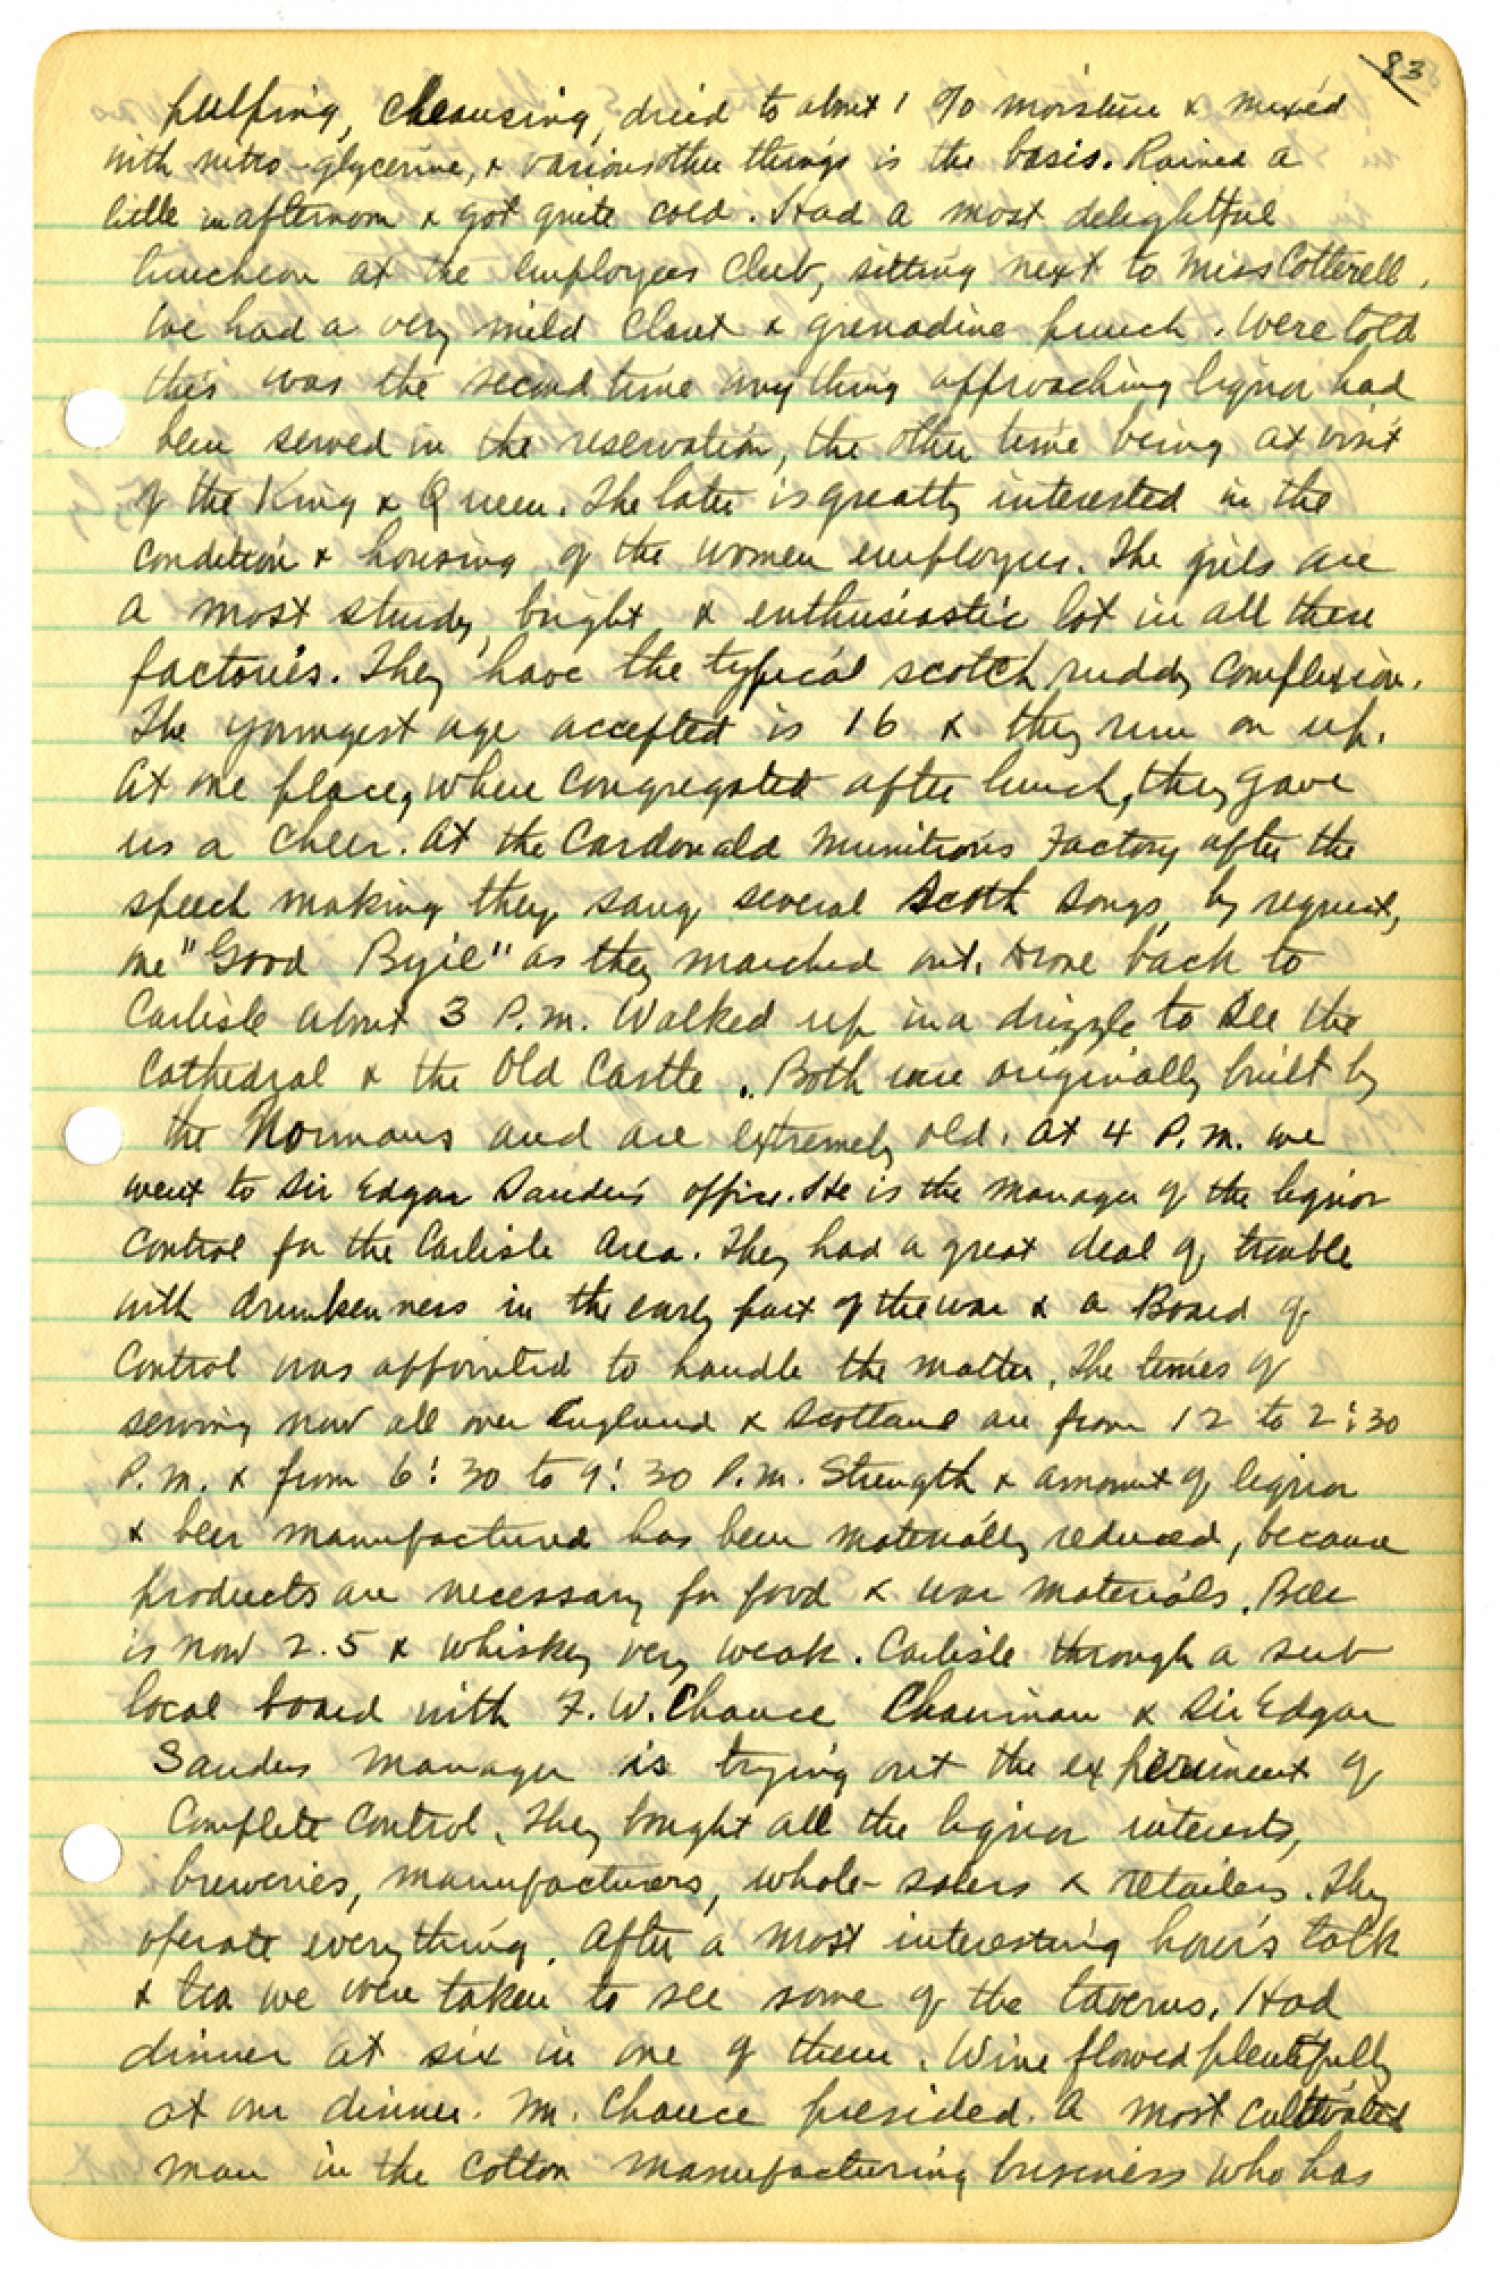 83
pulping, cleansing, dried to about 1 % moisture & mixed
with nitro-glycerine, & various other things is the basis. Rained a
little in afternoon & got quite cold. Had a most delightful
luncheon at the Employees Club, sitting next to Miss Cotterell.
We had a very mild Claret & grenadine punch. Were told
this was the second time anything approaching liquor had
been served in the reservation, the other time being at visit
of the King & Queen. The later is greatly interested in the
condition & housing of the women employees. The girls are
a most sturdy, bright & enthusiastic lot in all these
factories. They have the typical scotch ruddy complexion.
The youngest age accepted is 16 & they run on up.
At one place, where congregated after lunch, they gave
us a cheer. At the Cardonald Munitions Factory after the
speech making they sang several Scoth songs, by request,
one "Good Byie" as they marched out. Drove back to
Carlisle about 3 P.M. Walked up in a drizzle to see the
Cathedral & the Old Castle. Both were originally built by
the Normans and are extremely old. At 4 P.M. we
went to Sir Edgar Sanders office. He is the manager of the liquor
Control for the Carlisle Area. They had a great deal of trouble
with drunkenness in the early part of the war & a Board of
Control was appointed to handle the matter. The times of
serving now all over England & Scotland are from 12 to 2:30
P.M. & from 6:30 to 9:30 P.M. Strength & amount of liquor
& beer manufactured has been materially reduced, because
products are necessary for food & war materials. Beer
is now 2.5 & whiskey very weak. Carlisle through a sub
local board with F. W. Chance Chairman & Sir Edgar
Sanders manager is trying out the experiment of
Complete Control. They bought all the liquor interests,
breweries, manufacturers, whole-salers & retailers. They
operate everything. After a most interesting hour's talk
& tea we were taken to see some of the taverns. Had
dinner at six in one of them. Wine flowed plentifully
at our dinner. Mr. Chance presided. A most cultivated
man in the cotton manufacturing business who has